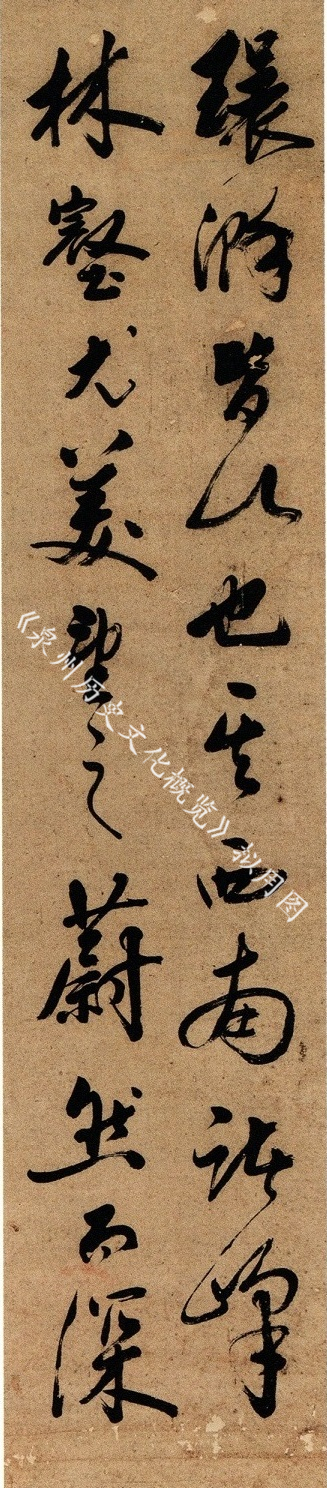 環滁皆山也其西南諸峰
林壑尤美望之蔚然而深
《泉州历史文化概览》拟用图